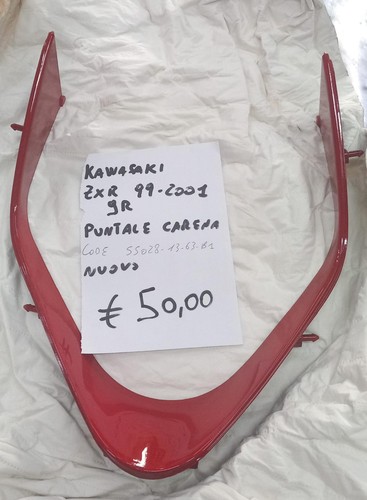 KAWASAKI
ZXR 99-2001
9R
PUNTALE CARENA
CODE 55028-1363-B1
NUOVO
€ 50,00